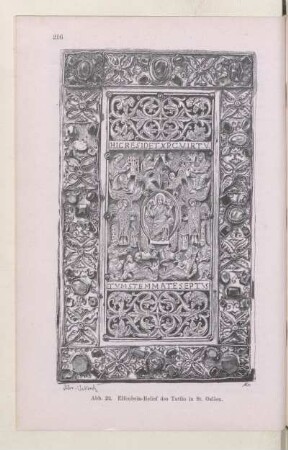 216
HIC RESIDET XPC VIRTV
TVM STEMMATE SEPTVS
Abb. 23. Elfenbein-Relief des Tutilo in St. Gallen.